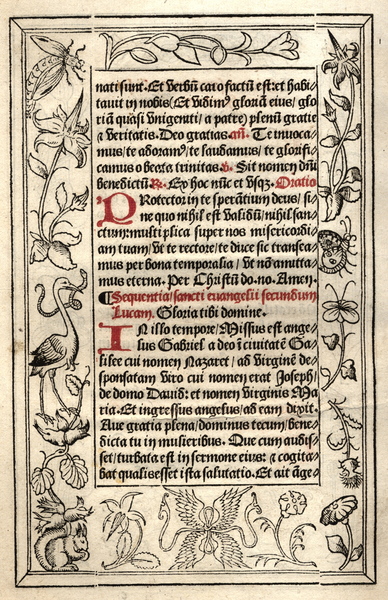 nati sunt. Et verbū caro factū est: et habi-
tauit in nobis (Et vidimꝰ gloriā eius/ glo
riā quasi vnigeniti/ a patre) plenū gratie
⁊ veritatis. Deo gratias. añ. Te inuoca-
mus/ te adoramꝰ/ te laudamus/ te glorifi-
camus o beata trinitas. ℣. Sit nomen dñi
benedictū. ℟. Ex hoc nūc et vsqz. Oratio
PRotector in te sperātium deus/ si-
ne quo nihil est validū/ nihil san-
ctum: multiplica super nos misericordi-
am tuam/ vt te rectore/ te duce sic transea-
mus per bona temporalia/ vt nō amitta-
mus eterna. Per Christū do. no. Amen.
¶ Sequentia/ sancti euangelii secundum
Lucam. Gloria tibi domine.
IN illo tempore/ Missus est ange-
lus Gabriel a deo ī ciuitatē Ga-
lilee cui nomen Nazaret/ ad virginē de-
sponsatam viro cui nomen erat Joseph/
de domo Dauid: et nomen virginis Ma
ria. Et ingressus angelus/ ad eam dixit.
Aue gratia plena/ dominus tecum/ bene-
dicta tu in mulieribus. Que cum audis-
set/ turbata est in sermone eius/ ⁊ cogita-
bat qualis esset ista salutatio. Et ait āge-